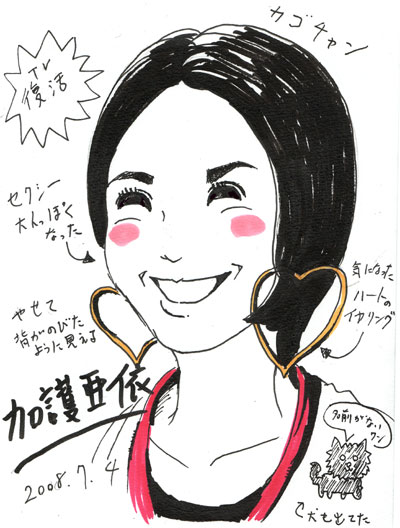 カゴチャン
TV
復活
セクシー
大人っぽく
なった
気になった
ハートの
イヤリング
やせて
背がのびた
ように見える
加護亜依
2008.7.4
名前がないワン
犬も出てた